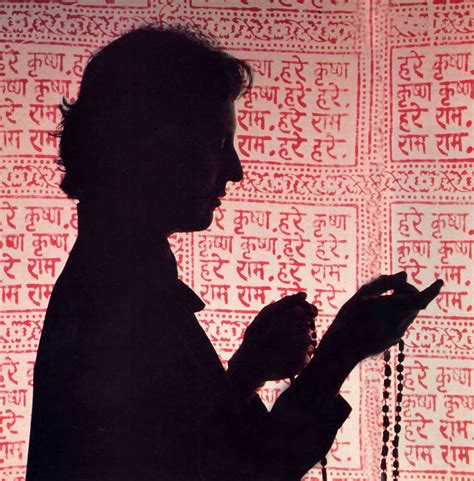 हरे कृष्ण. हरे कृष्ण
कृष्ण हरे हरे.
हरे राम. हरे राम
राम राम. हरे हरे.
हरे कृष्ण.
कृष्ण कृष्ण
हरे राम.
राम राम
हरे कृष्ण. हरे कृष्ण
कृष्ण कृष्ण कृष्ण हरे.
हरे राम. हरे राम
राम राम राम. हरे
हरे कृष्ण.
कृष्ण कृष्ण
हरे राम.
राम राम
हरे
कृष्ण
हरे
राम
हरे कृष्ण
कृष्ण कृष्ण
हरे राम
राम राम